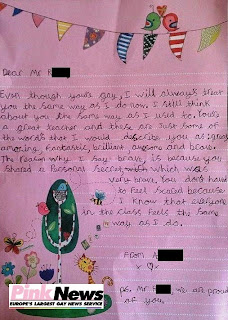 Dear Mr R
Even though your gay, I will always treat
you the same way as I do now. I still think
about you the same way as I used to. Your's
a great teacher and these are just some of
the words that I would describe you as: great,
amazing, fantastic, brilliant, awesome and brave.
The reason why I say brave is because you
shared a personal secret which was
very brave. You don't have
to feel scared because
I know that everyone
in the class feels the same
way as I do.
From A
ps. Mr we are proud
of you.
PinkNews
EUROPE'S LARGEST GAY NEWS SERVICE